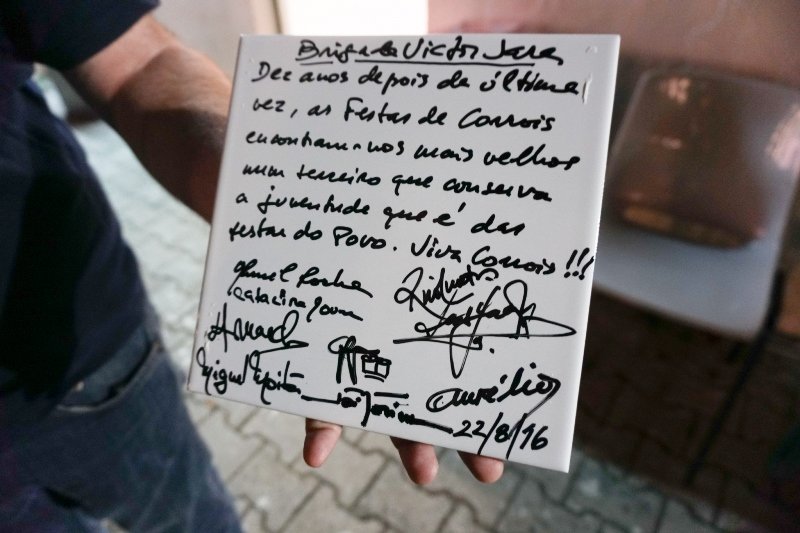 Brigada Victor Jara
Dez anos depois da última
vez, as Festas de Corroios
encontram-nos mais velhos
num terreiro que conserva
a juventude que é das
festas do Povo. Viva Corroios!!!
Manuel Rocha
Catarina Moura
Arnaldo
Miguel
Aurélio
22/8/96